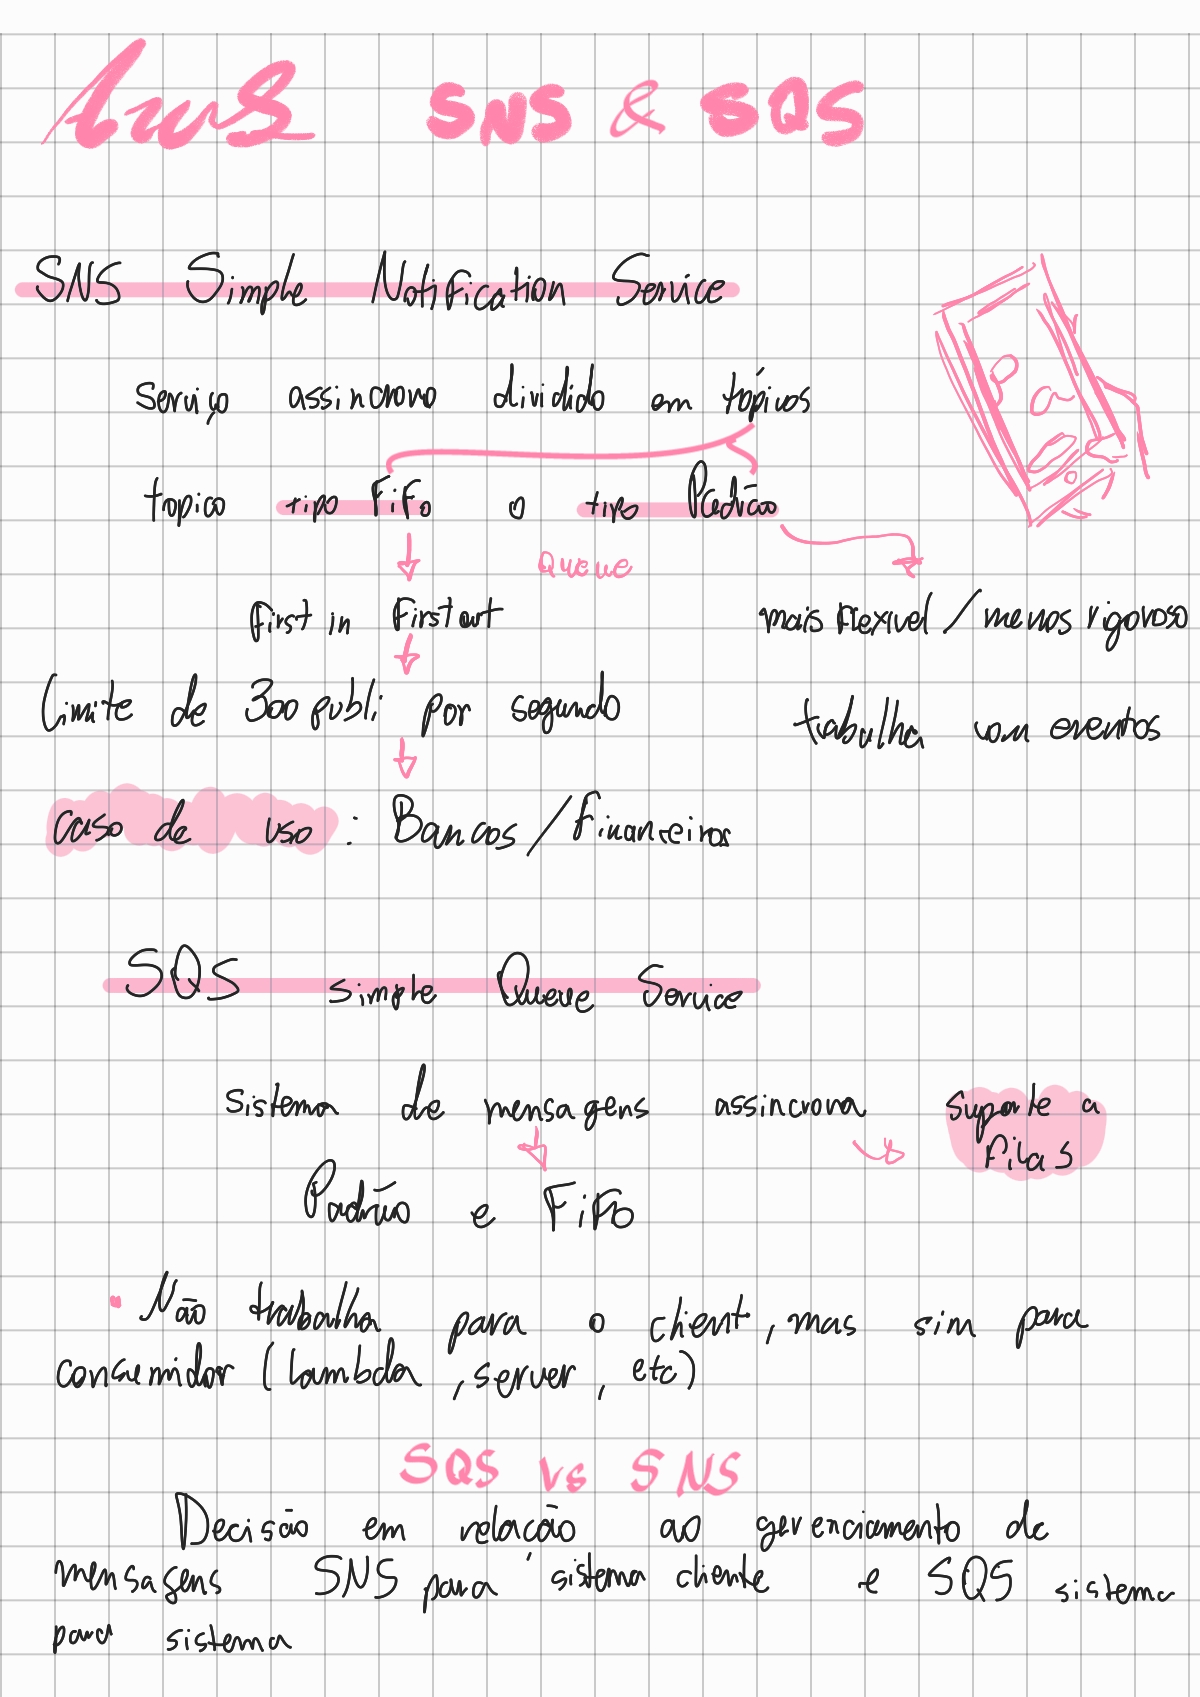 Aws SNS & SQS
SNS Simple Notification Service
Serviço assincrono dividido em tópicos
topico tipo FiFo o tipo Padrão
Queue
first in First out
mais flexivel / menos rigoroso
Limite de 300 publi por segundo
trabalha com eventos
caso de uso : Bancos / financeiros
SQS simple Queue Service
sistema de mensagens assincrona
suporte a
filas
Padrão e FiFo
Não trabalha para o client, mas sim para
consumidor (lambda, server, etc)
SQS vs SNS
Decisão em relacão ao gerenciamento de
mensagens SNS para sistema cliente e SQS sistema
para sistema